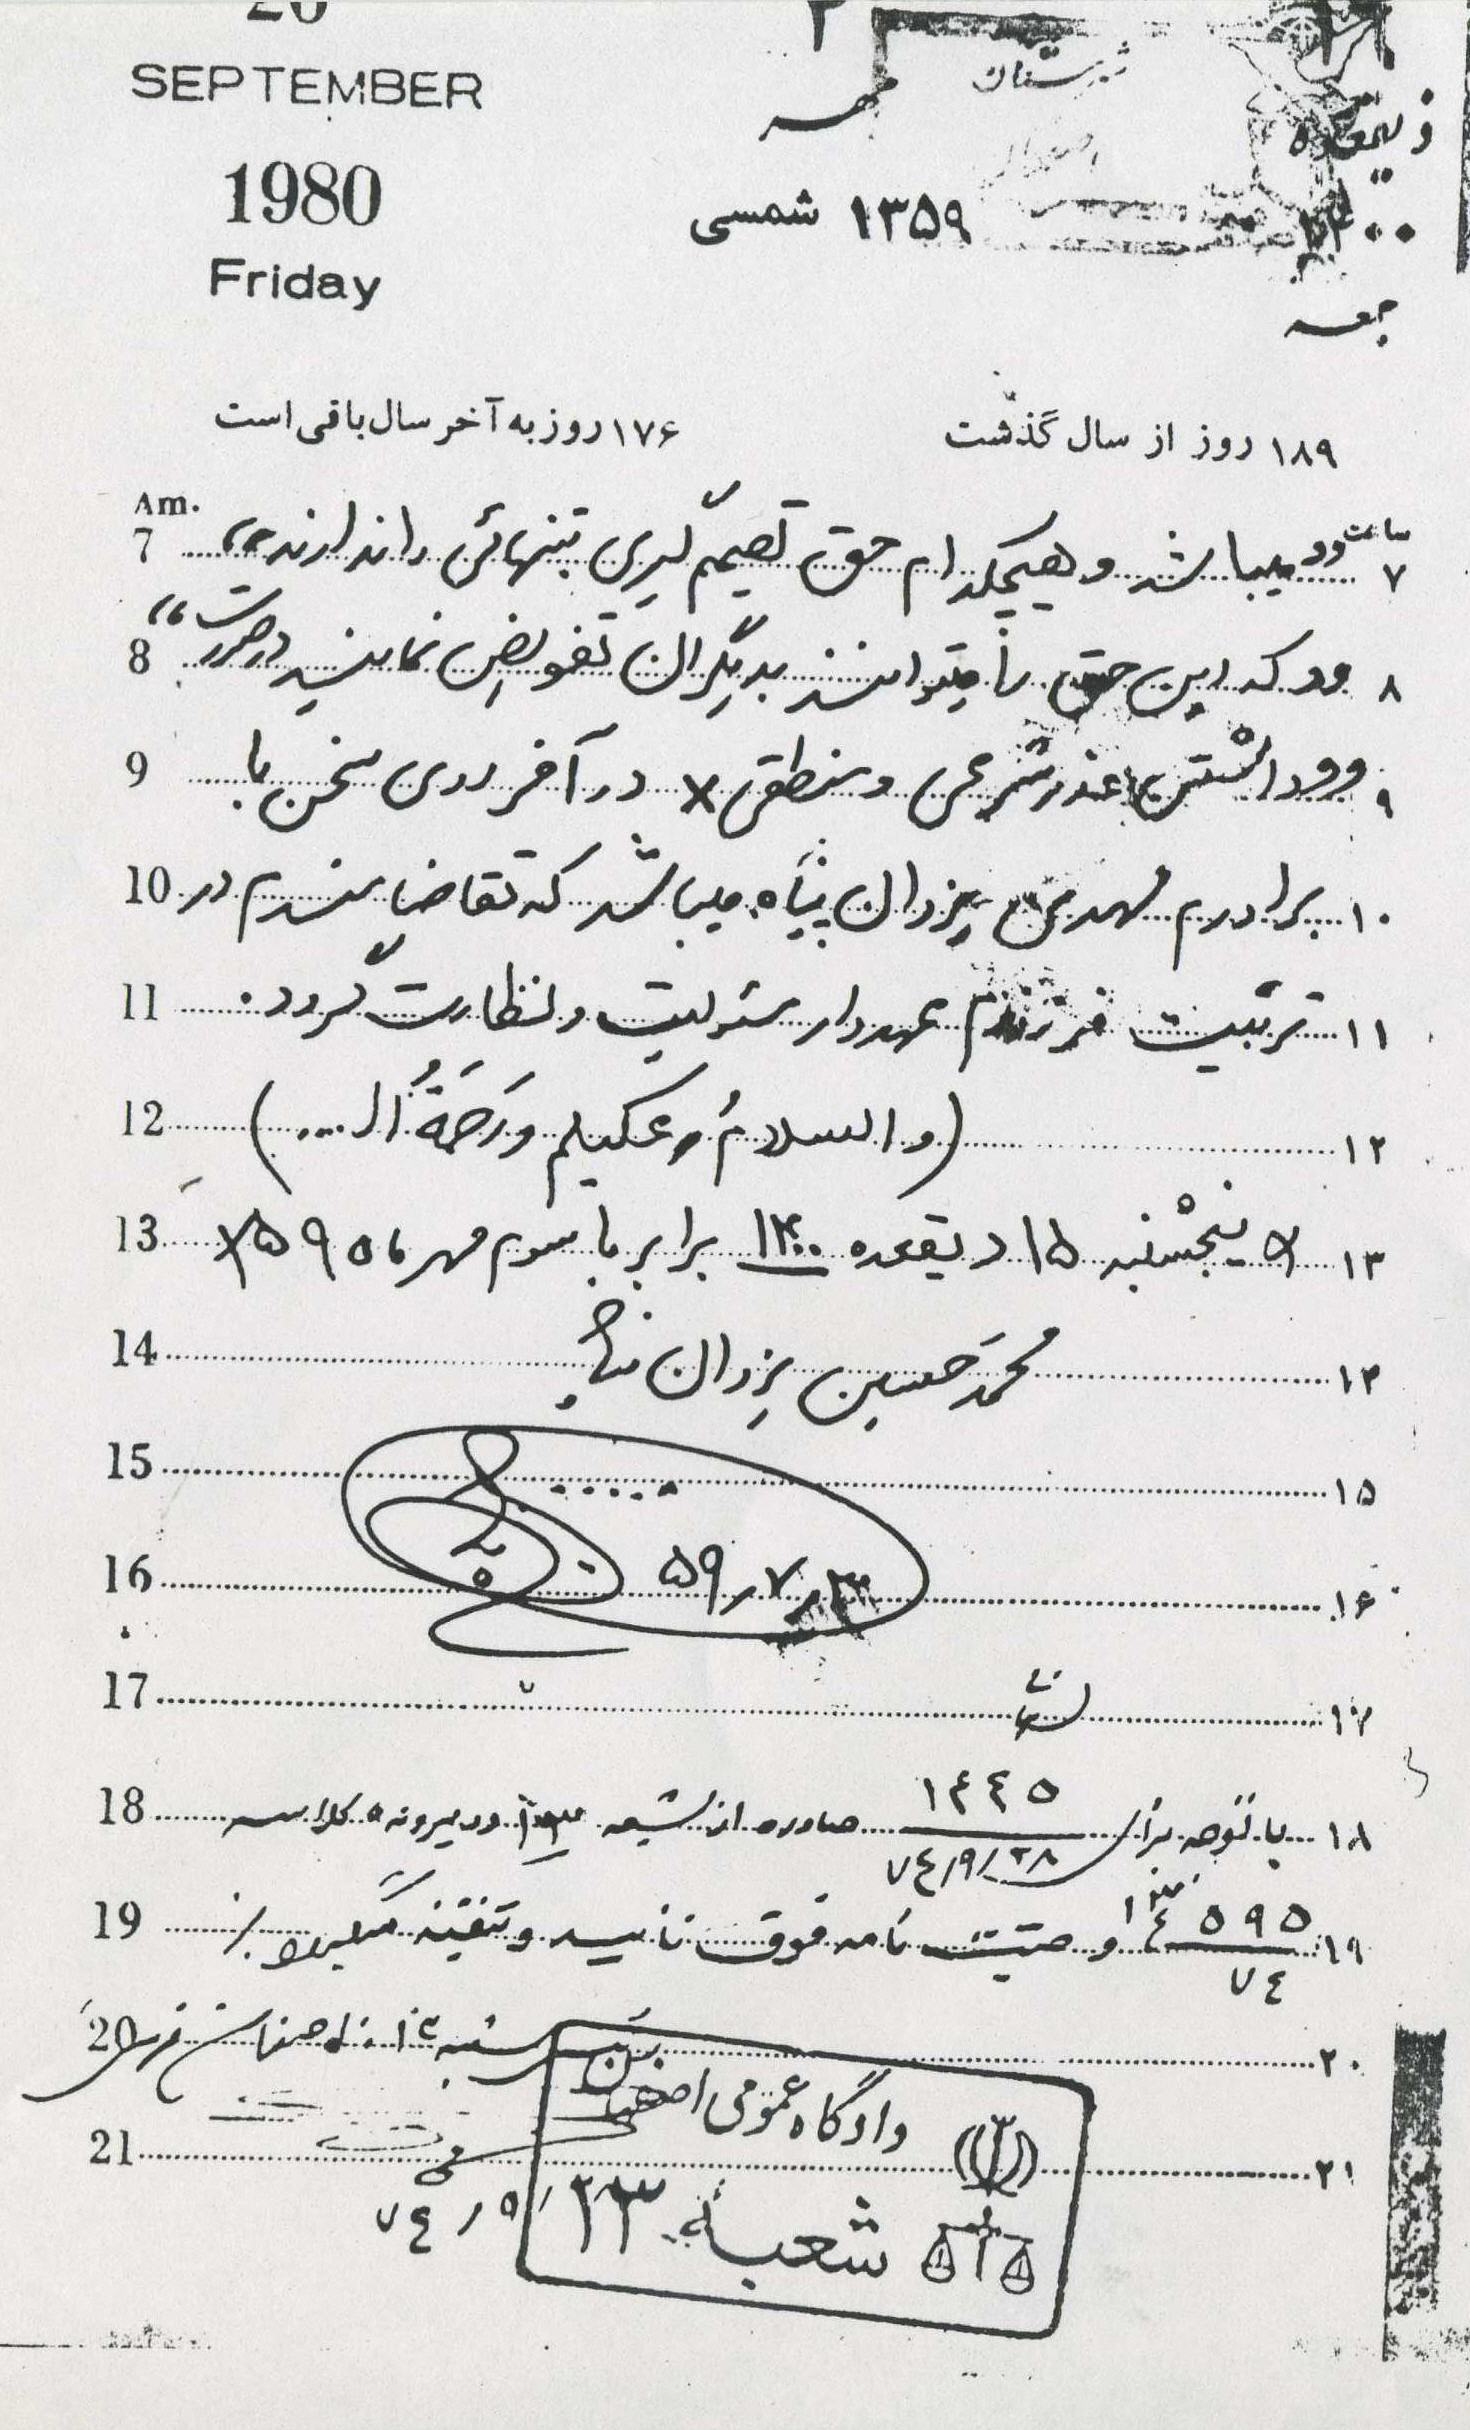 26
SEPTEMBER
1980
Friday
۴
مهر
۱۳۵۹ شمسی
ذیقعده
۱۴۰۰
جمعه
۱۸۹ روز از سال گذشت
۱۷۶ روز به آخر سال باقی است
Am.
ساعت
۷ میباشد و هیچکدام حق تصیمم گیری بتنهائی را ندارند 7
۸ که این حق را میتوانند بدیگران تفویض نمایند در صورت 8
۹ داشتن عذر شرعی و منطقی × در آخر روی سخن با 9
۱۰ برادرم مهدی یزدان پناه میباشد که تقاضا مندم در 10
۱۱ تربیت فرزندم عهده دار مسئولیت و نظارت گردد. 11
۱۲ (والسلامُ عکیلم وَرَحمَةُ الـ....) 12
۱۳ پنجشنبه ۱۵ ذیقعده ۱۴۰۰ برابر با سوم مهر ماه ۵۹ 13
۱۴ محمدحسین یزدان پناه 14
۱۵ 15
۱۶ ۳ر۷ر۵۹ 16
۱۷ 17
۱۸ با توجه برای ۱۴۴۵ ۷۴/۹/۲۸ صادره از شعبه ۱۳ در پرونده کلاسه 18
۱۹ ۵۹۵ ۷۴ وصیت نامه فوق تایید و تنفیذ میگردد 19
۲۰ رئیس شعبه اصفهان 20
۲۱ 21
دادگاه عمومی اصفهان
شعبه ۲۳
۷۴/۹/